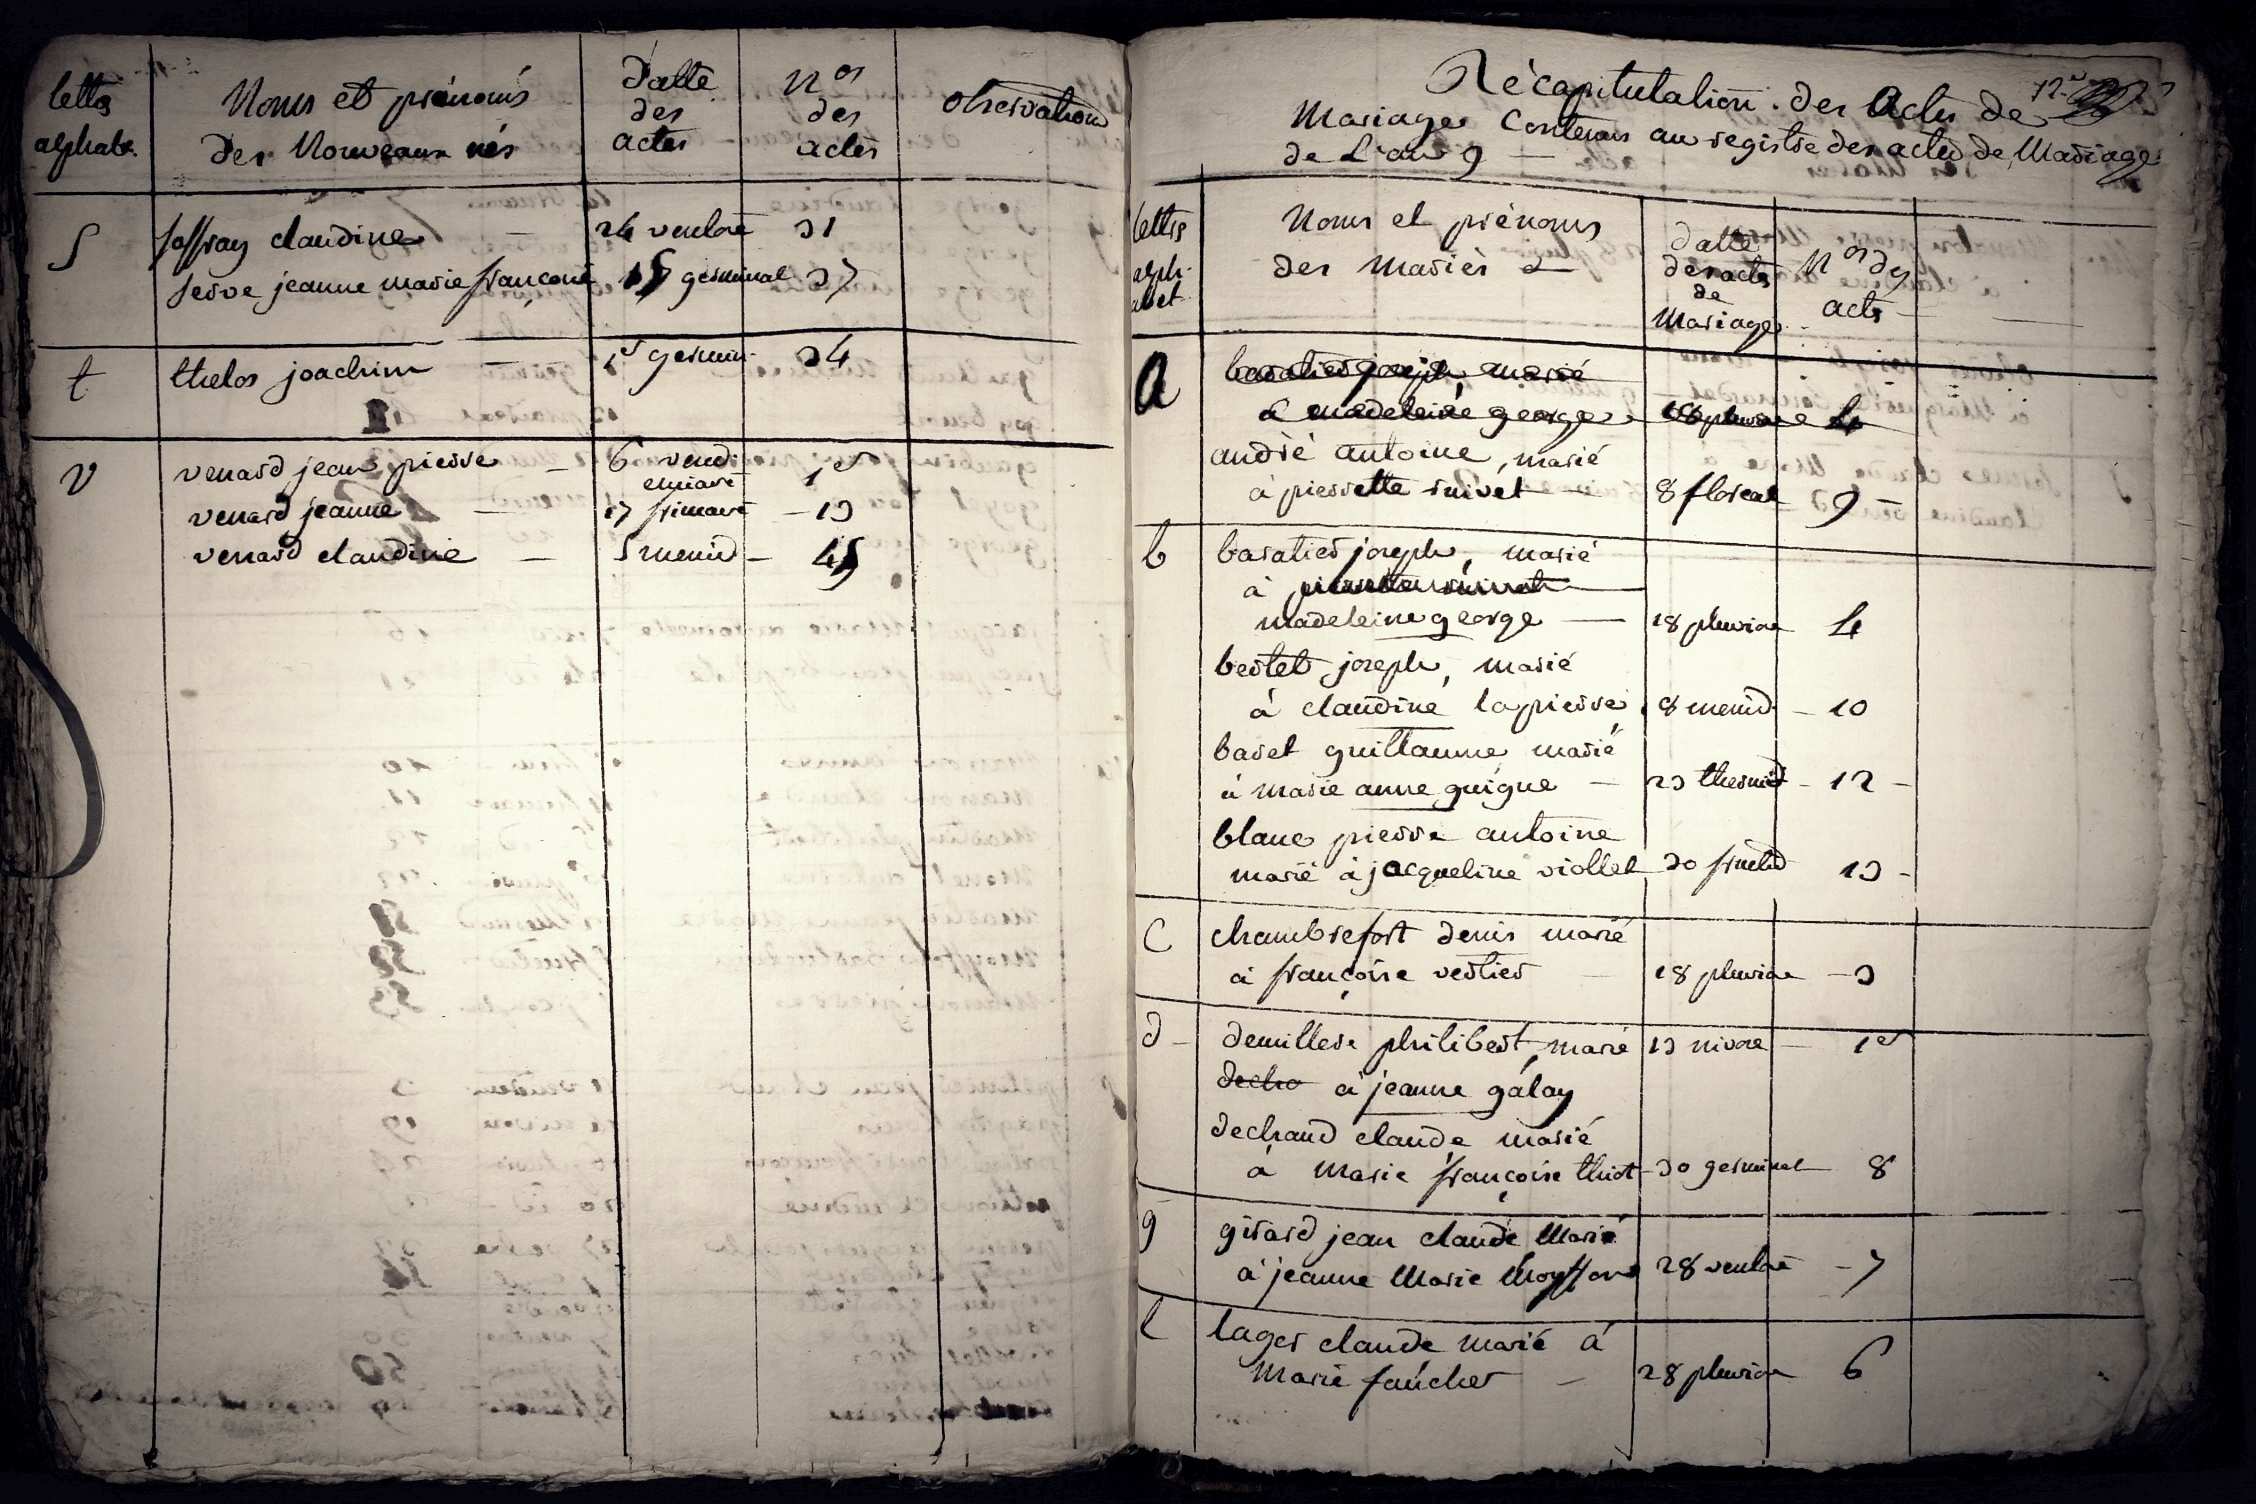 lettres
alphabt.
Noms et prénoms
Des Nouveaux nés
Datte
des
actes
Nos
des
actes
observations
S
soffray claudine - 24 ventose 31
serve jeanne marie françoise 15 germinal 37
t
thelos joachim - 1er germin. 34
v
venard jean pierre - 6 vendé
emiaire 1er
venard jeanne - 17 frimaire - 13
venard claudine - 5 messid - 45
Récapitulation des Actes de
Mariages Contenus au registre des actes de Mariage
de L'an 9 -
lettres
alph-
abet
Noms et prénoms
des mariés
datte
des actes
de
Mariages
Nos des
actes
a
baratier joseph, marié
à madeleine george 18 pluviose 4
andré antoine, marié
à pierrette rivet - 8 floreal 9
b
baratier joseph, marié
à pierrette rivet
madeleine george - 18 pluviose 4
bertet joseph, marié
à claudine lapierre 8 messid - 10
baret guillaume marié
à marie anne guigue - 23 thermid - 12 -
blanc pierre antoine
marié à jacqueline viollet 30 fructid 13 -
C
chambrefort denis marié
à françoise vertier - 18 pluviose - 3
d -
demillere philibert, marié 13 nivose - 1er
decha à jeanne galay
dechaud claude marié
à marie françoise thiot - 30 germinal - 8
g
girard jean claude Marié
à jeanne Marie 28 ventose - 7
l
lager claude marié à
Marie faucher - 28 pluviose 6